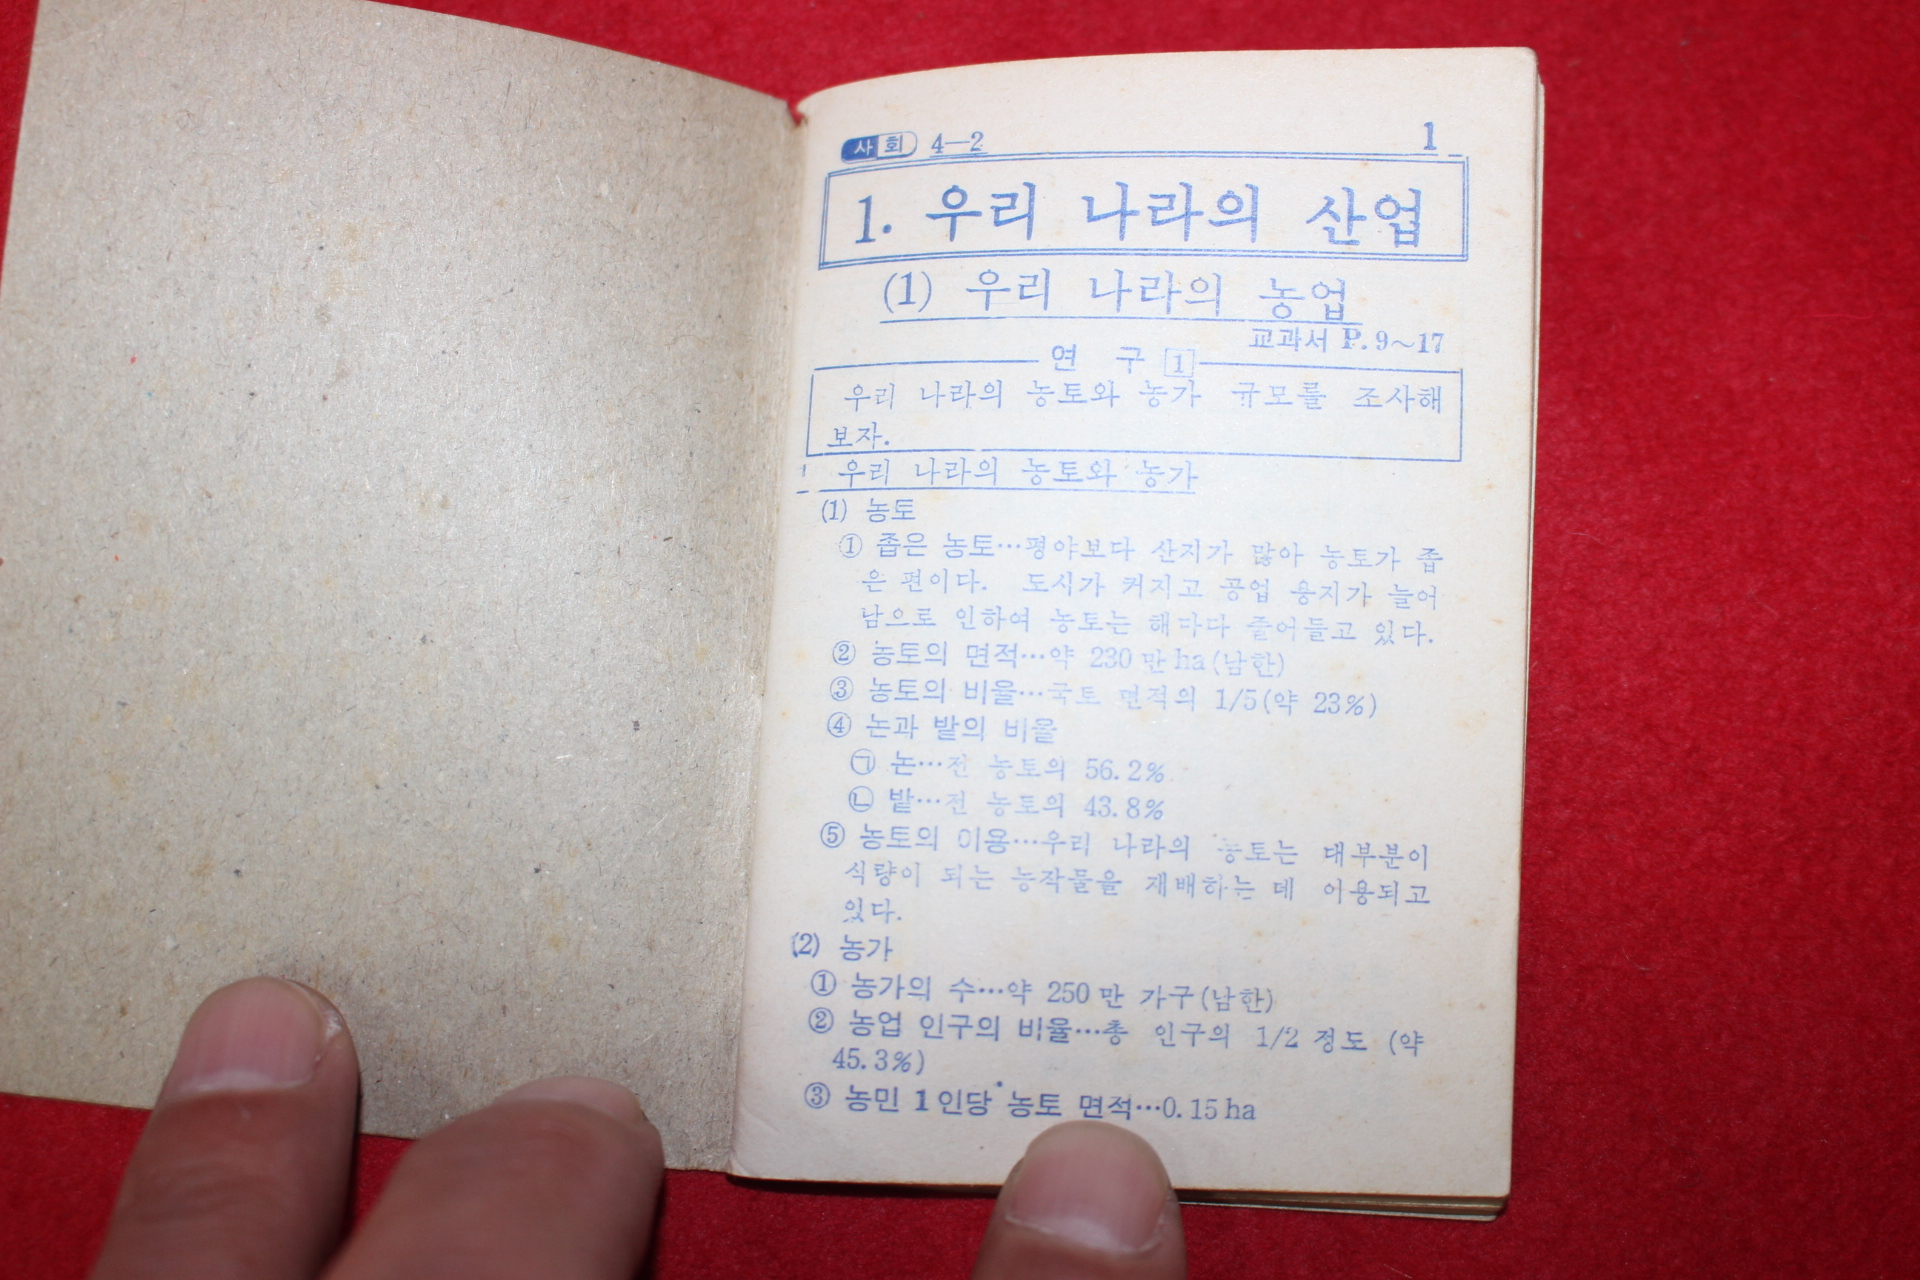 사회 4—2 1
1. 우리 나라의 산업
(1) 우리 나라의 농업
교과서 P. 9～17
연 구 1
우리 나라의 농토와 농가 규모를 조사해
보자.
1 우리 나라의 농토와 농가
(1) 농토
① 좁은 농토…평야보다 산지가 많아 농토가 좁
은 편이다. 도시가 커지고 공업 용지가 늘어
남으로 인하여 농토는 해마다 줄어들고 있다.
② 농토의 면적…약 230만 ha(남한)
③ 농토의 비율…국토 면적의 1/5(약 23%)
④ 논과 밭의 비율
㉠ 논…전 농토의 56.2%
㉡ 밭…전 농토의 43.8%
⑤ 농토의 이용…우리 나라의 농토는 대부분이
식량이 되는 농작물을 재배하는 데 이용되고
있다.
(2) 농가
① 농가의 수…약 250만 가구(남한)
② 농업 인구의 비율…총 인구의 1/2 정도 (약
45.3%)
③ 농민 1인당 농토 면적…0.15ha